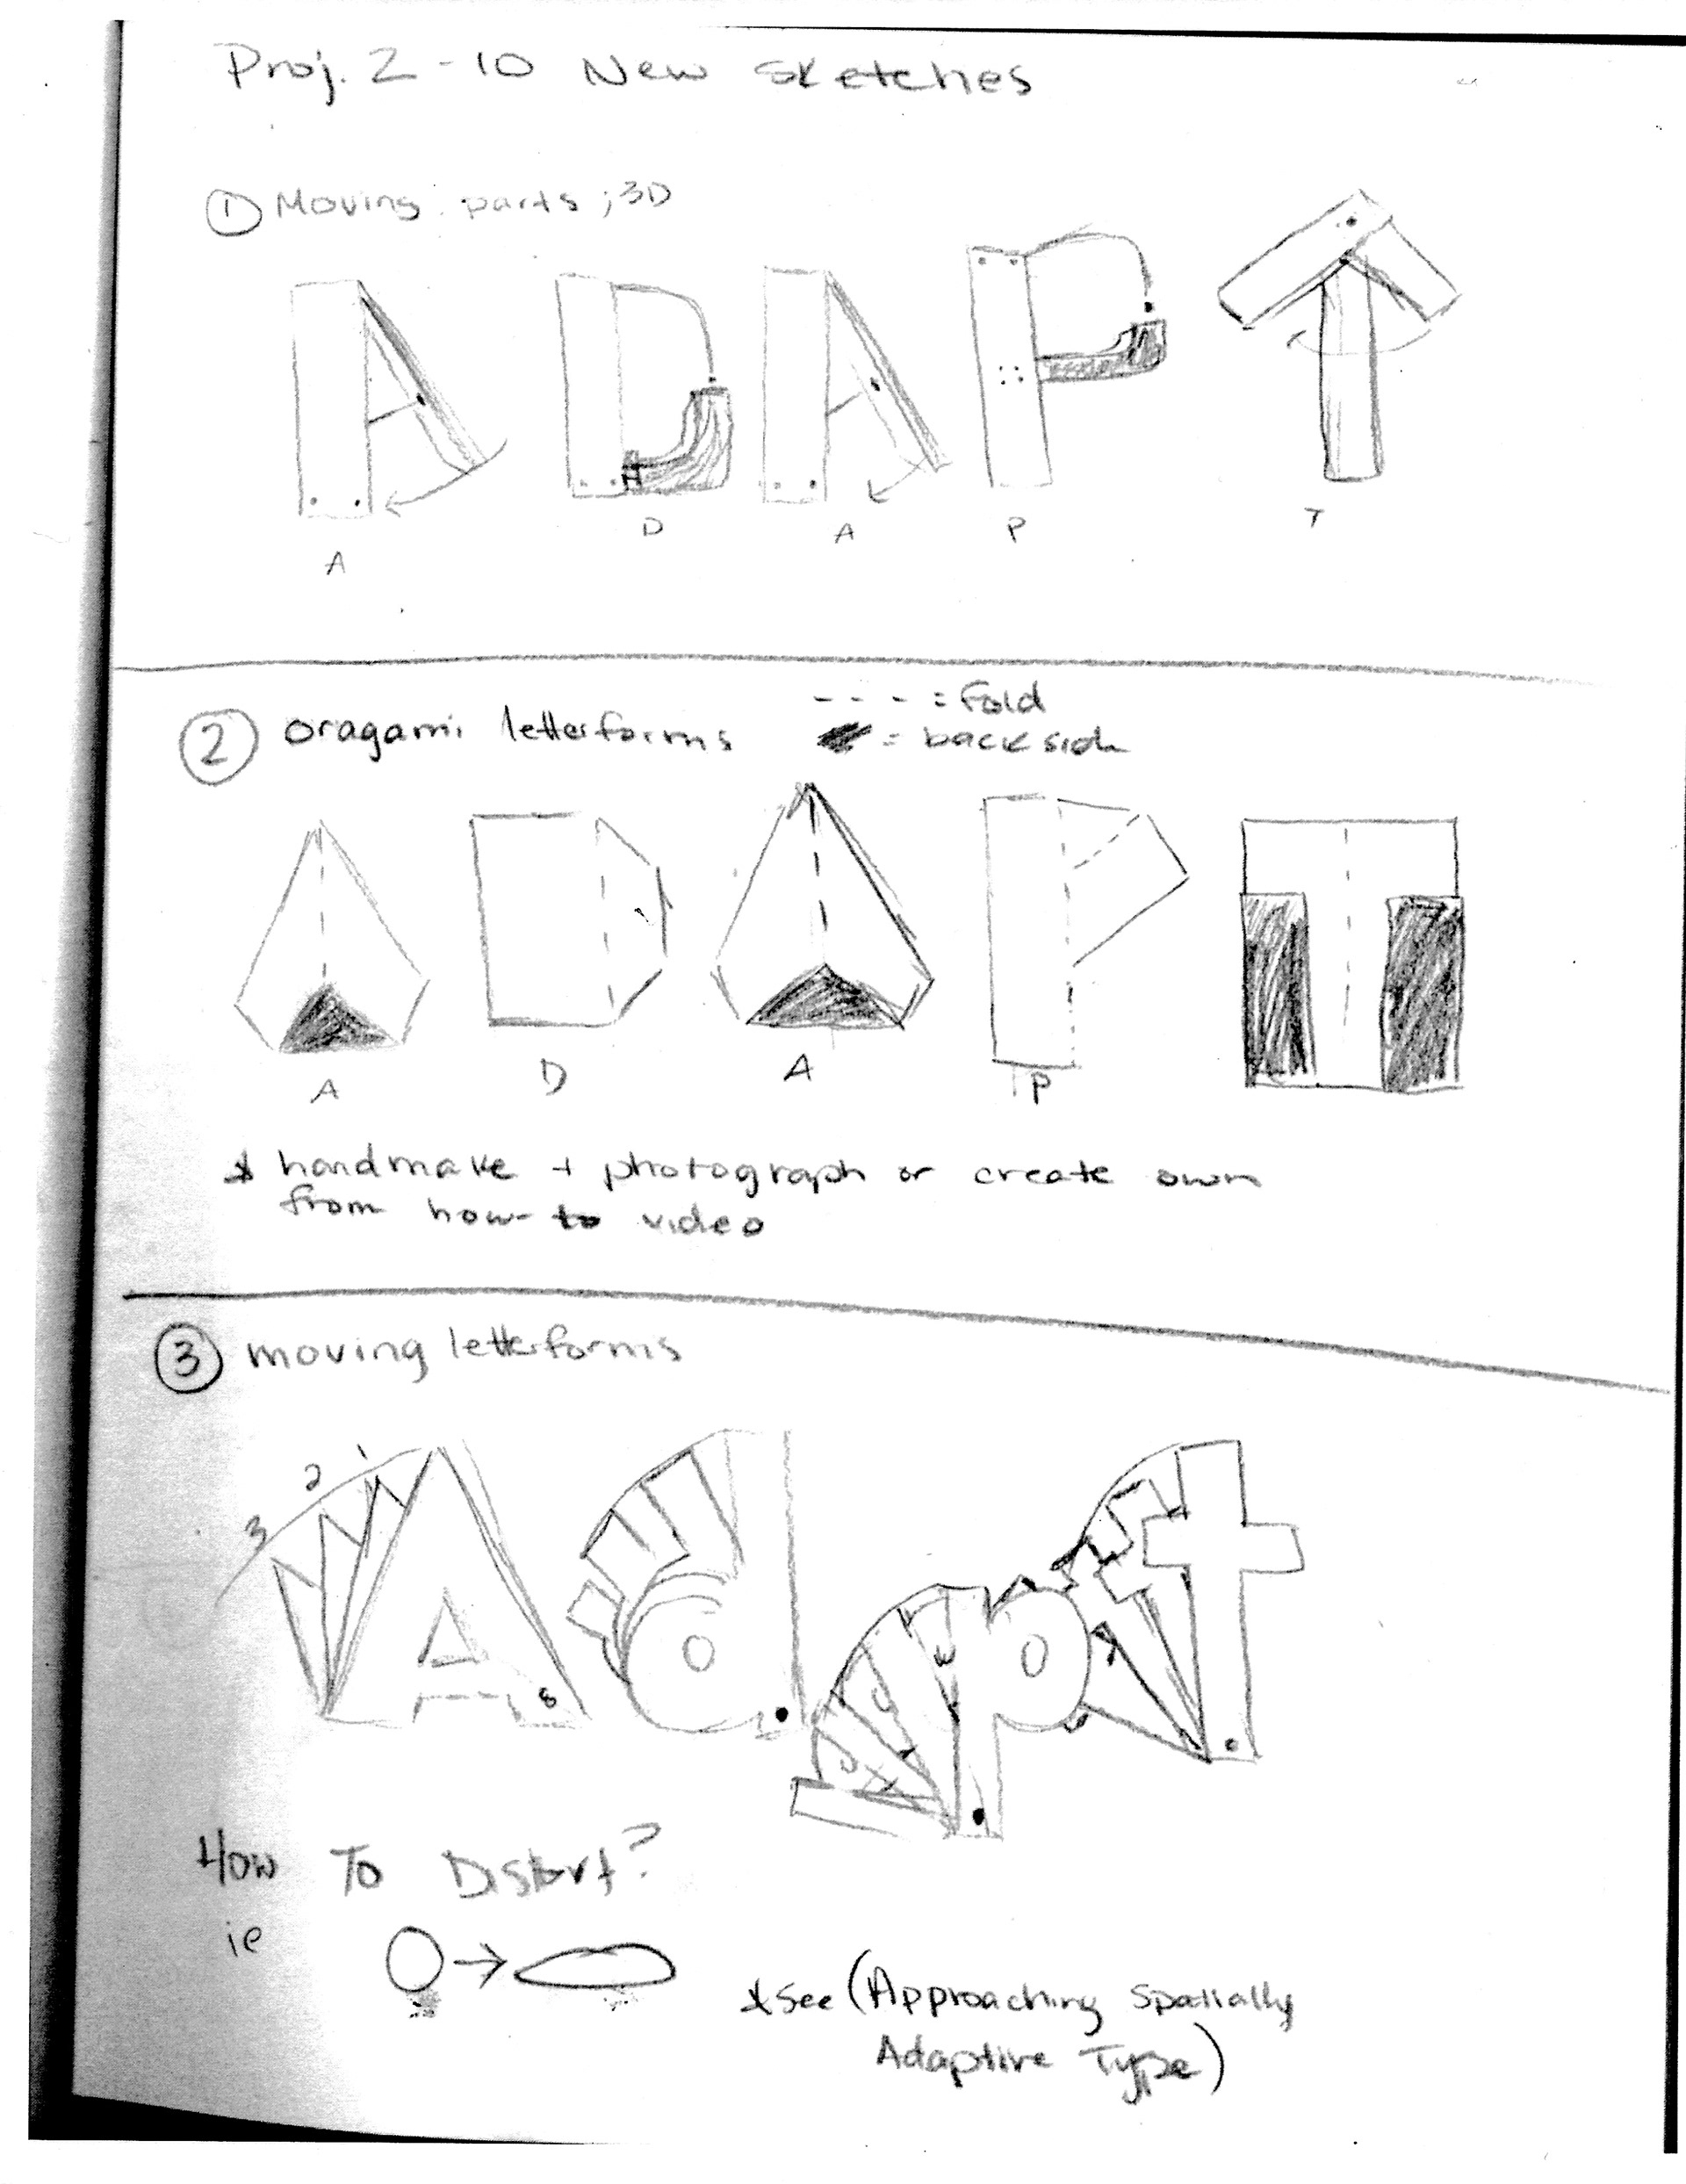 Proj. 2 - 10 New Sketches
① Moving parts; 3D
A D A P T
A D A P T
② oragami letterforms
- - - - = fold
= backside
A D A P T
A D A P
* handmake + photograph or create own
from how-to video
③ moving letterforms
3 2 1
Adapt
How To Distort?
ie
O →
* See (Approaching Spatially
Adaptive Type)